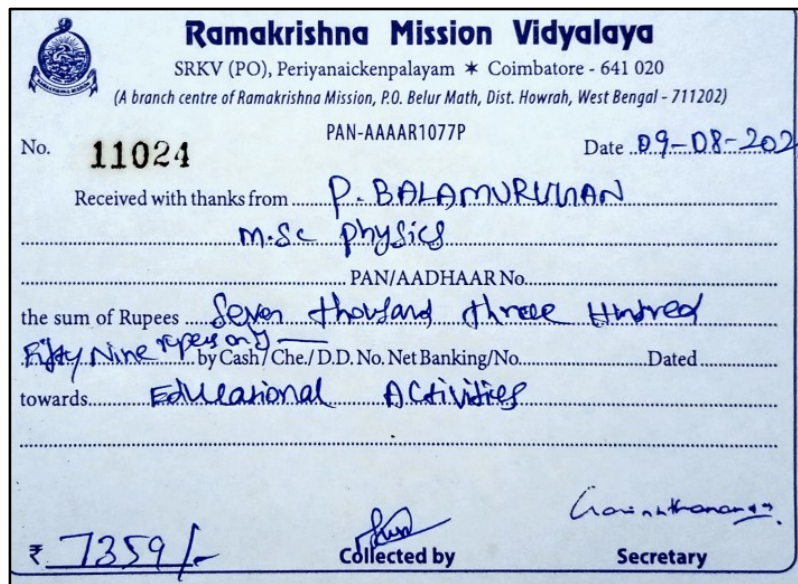 Ramakrishna Mission Vidyalaya
SRKV (PO), Periyanaickenpalayam ✶ Coimbatore - 641 020
(A branch centre of Ramakrishna Mission, P.O. Belur Math, Dist. Howrah, West Bengal - 711202)
PAN-AAAAR1077P
No. 11024 Date 09-08-202
Received with thanks from P. BALAMURUHAN
M.Sc physics
PAN/AADHAAR No.
the sum of Rupees Seven thousand three Hundred
Fifty Nine rupees only by Cash/ Che./ D.D. No. Net Banking/No. Dated
towards Educational Activities
₹ 7359/- Collected by Secretary